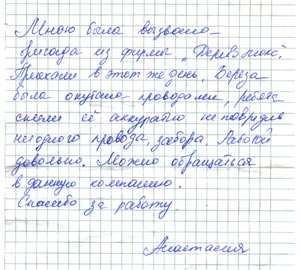 Мною была вызвана
бригада из фирмы „
Приехали в этот же день. Береза
была окутана проводами, ребята
сняли её аккуратно не повредив
ни одного провода, забора. Работой
довольна. Можно обращаться
в данную компанию.
Спасибо за работу.
Анастасия